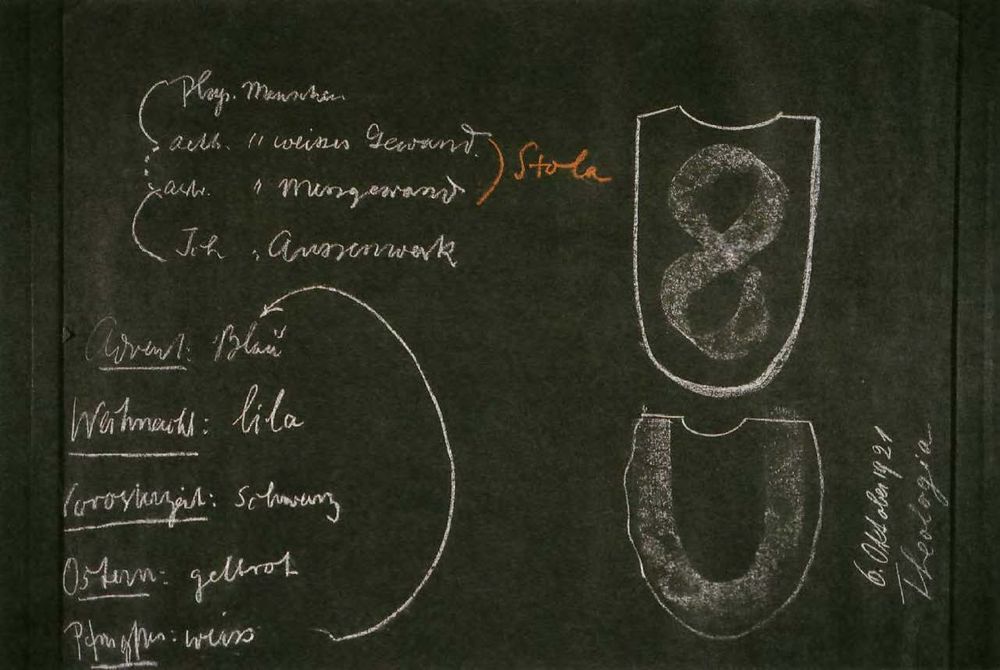 Phys. Menschen
aeth. " weisses Gewand
astr. " Messgewand
Stola
Ich , Aussenwerk
Advent: Blau
Weihnacht: lila
Vorosterzeit: Schwarz
Ostern: gelbrot
Pfingsten: weiss
6. Oktober 1921
Theologia